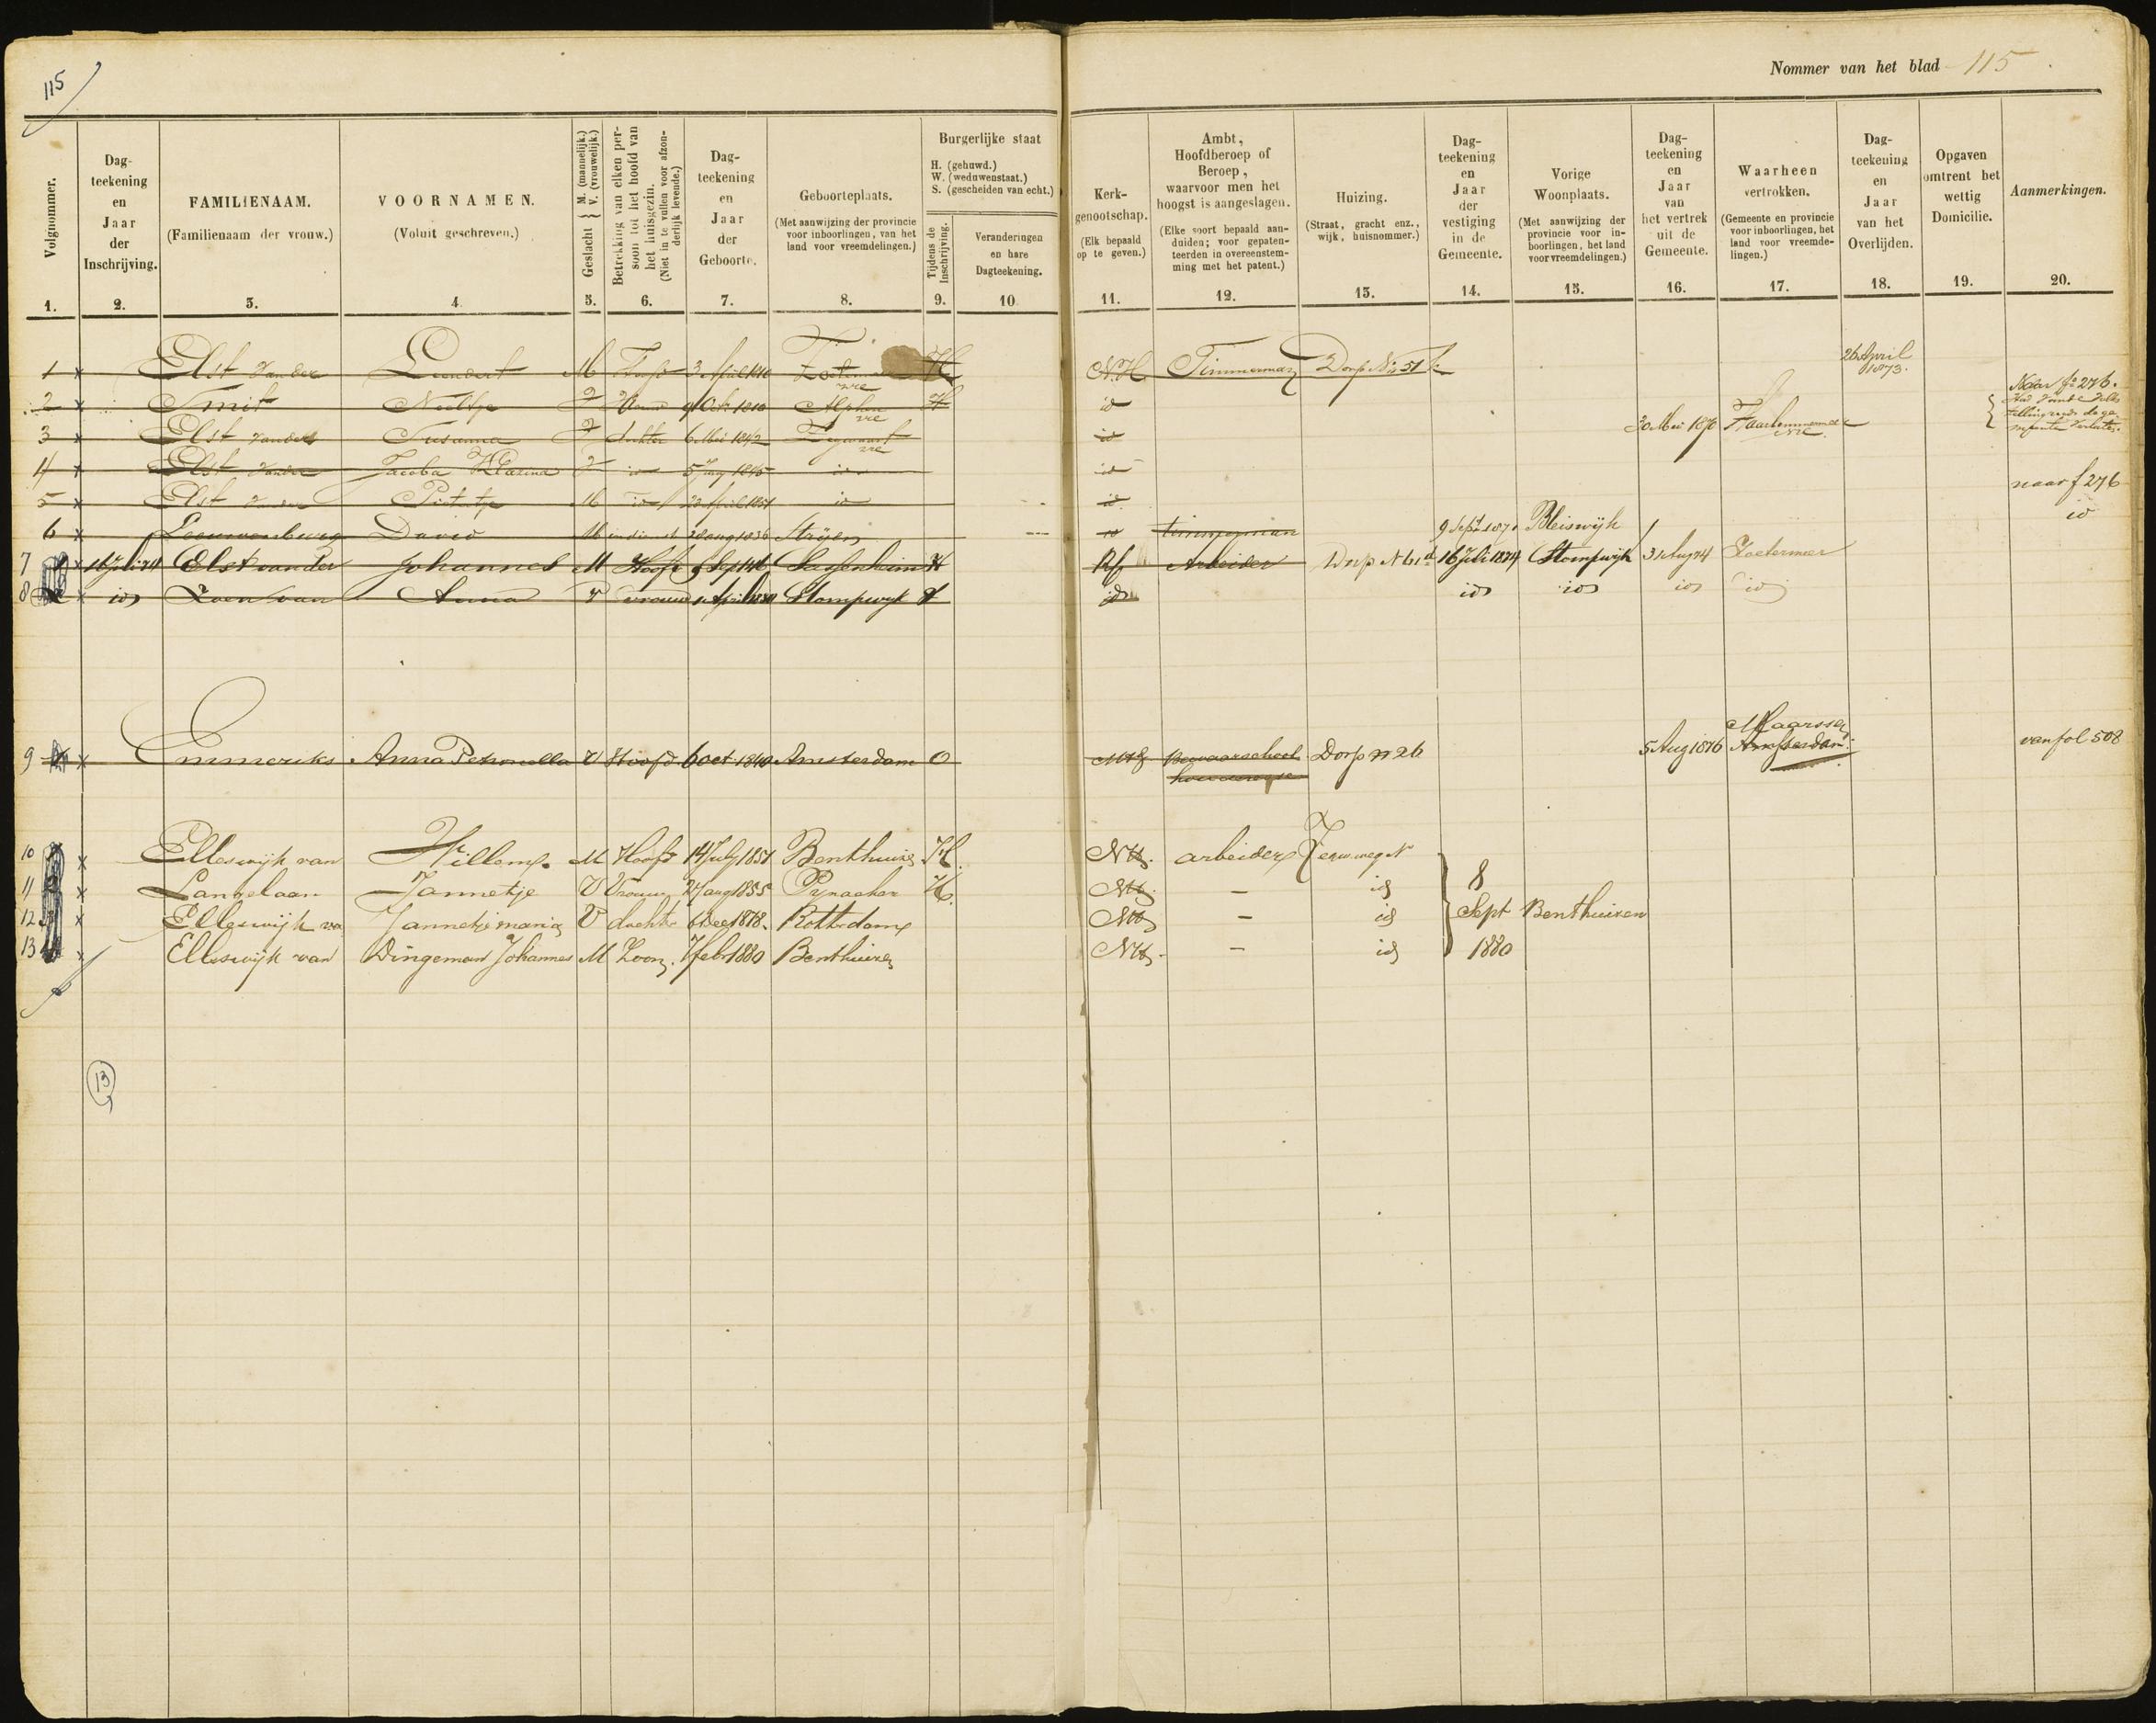 115
Nommer van het blad 115
Volgnommer.
Dag-
teekening
en
Jaar
der
Inschrijving.
FAMILIENAAM.
(Familienaam der vrouw.)
VOORNAMEN.
(Voluit geschreven.)
Geslacht { M. (mannelijk.) V. (vrouwelijk.)
Betrekking van elken per-
soon tot het hoofd van
het huisgezin.
(Niet in te vullen voor afzon-
derlijk levende.)
Dag-
teekening
en
Jaar
der
Geboorte.
Geboorteplaats.
(Met aanwijzing der provincie
voor inboorlingen, van het
land voor vreemdelingen.)
Burgerlijke staat
H. (gehuwd.)
W. (weduwenstaat.)
S. (gescheiden van echt.)
Tijdens de
Inschrijving.
Veranderingen
en hare
Dagteekening.
Kerk-
genootschap.
(Elk bepaald
op te geven.)
Ambt,
Hoofdberoep of
Beroep,
waarvoor men het
hoogst is aangeslagen.
(Elke soort bepaald aan-
duiden; voor gepaten-
teerden in overeenstem-
ming met het patent.)
Huizing.
(Straat, gracht enz.,
wijk, huisnommer.)
Dag-
teekening
en
Jaar
der
vestiging
in de
Gemeente.
Vorige
Woonplaats.
(Met aanwijzing der
provincie voor in-
boorlingen, het land
voor vreemdelingen.)
Dag-
teekening
en
Jaar
van
het vertrek
uit de
Gemeente.
Waarheen
vertrokken.
(Gemeente en provincie
voor inboorlingen, het
land voor vreemde-
lingen.)
Dag-
teekening
en
Jaar
van het
Overlijden.
Opgaven
omtrent het
wettig
Domicilie.
Aanmerkingen.
1. 2. 3. 4. 5. 6. 7. 8. 9. 10. 11. 12. 13. 14. 15. 16. 17. 18. 19. 20.
1 x Elst van der Leendert M Hoofd 3 April 1810 H N.H. Timmerman Dorp No 51 26 April 1873.
2 x Smit Neeltje V Vrouw 9 Oct 1810 Alphen H id Naar fo 276.
3 x Elst van der Susanna V dochter 6 Mei 1842 Zegwaart id 30 Mei 1870 Haarlemmermeer
4 x Elst van der Jacoba V id 5 1845 id id
5 x Elst van der M id 23 April 1851 id id naar f 276
6 x Leeuwenburg David M 28 aug 1836 Strijen id timmerman 9 Sept Bleiswijk id
7 x 16 Juli 74 Elst van der Johannes M Hoofd Sassenheim H Arbeider Dorp 16 Juli 1874 Stompwijk 31 Aug 74 Zoetermeer
8 x id Zoen van Anna V vrouw Stompwijk H id id id id id
9 x Emmeriks Anna Petronella V Hoofd 6 oct 1840 Amsterdam O NHg Bewaarschool Dorp n 26 5 Aug 1876 Maarssen van fol 508
houderesse Amsterdam
10 x Elleswijk van Willem M Hoofd 14 July 1851 Benthuizen H. NH. arbeider
11 x Langelaan Jannetje V Vrouw 27 aug 1855 Pynacker H. NH. – id 8
12 x Elleswijk van Jannetje maria V dochter 6 Dec 1878. Rotterdam NH – id Sept Benthuizen
13 x Elleswijk van Dingeman Johannes M Zoon. 7 febr 1880 Benthuizen NH. – id 1880
13